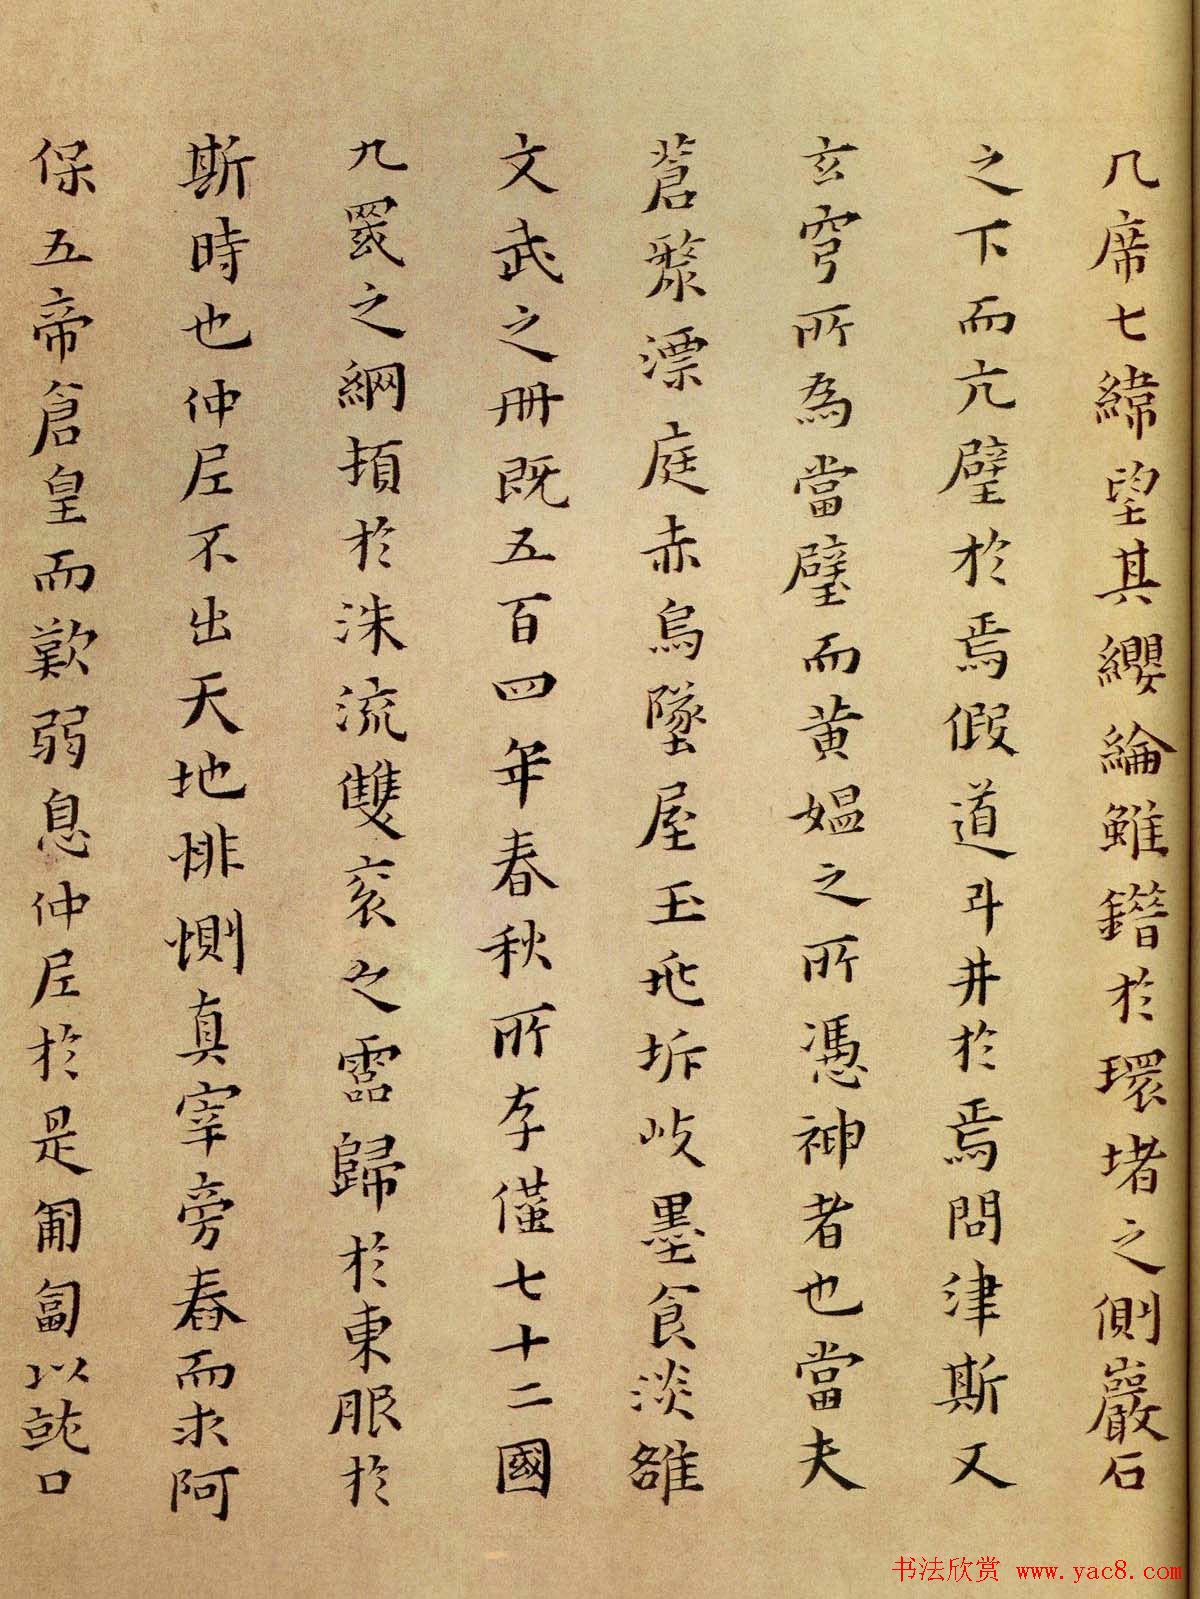 几席七緯望其纓綸雖鐕於環堵之側巖石
之下而亢璧於焉假道斗井於焉問津斯又
玄穹所為當璧而黃媼之所憑神者也當夫
蒼漦漂庭赤烏墜屋玉兆坼岐墨食淡雒
文武之冊既五百四年春秋所存僅七十二國
九罭之綱頓於洙流雙衮之靈歸於東服於
斯時也仲尼不出天地悱惻真宰旁舂而求阿
保五帝倉皇而歎弱息仲尼於是匍匐以就口
书法欣赏 www.yac8.com